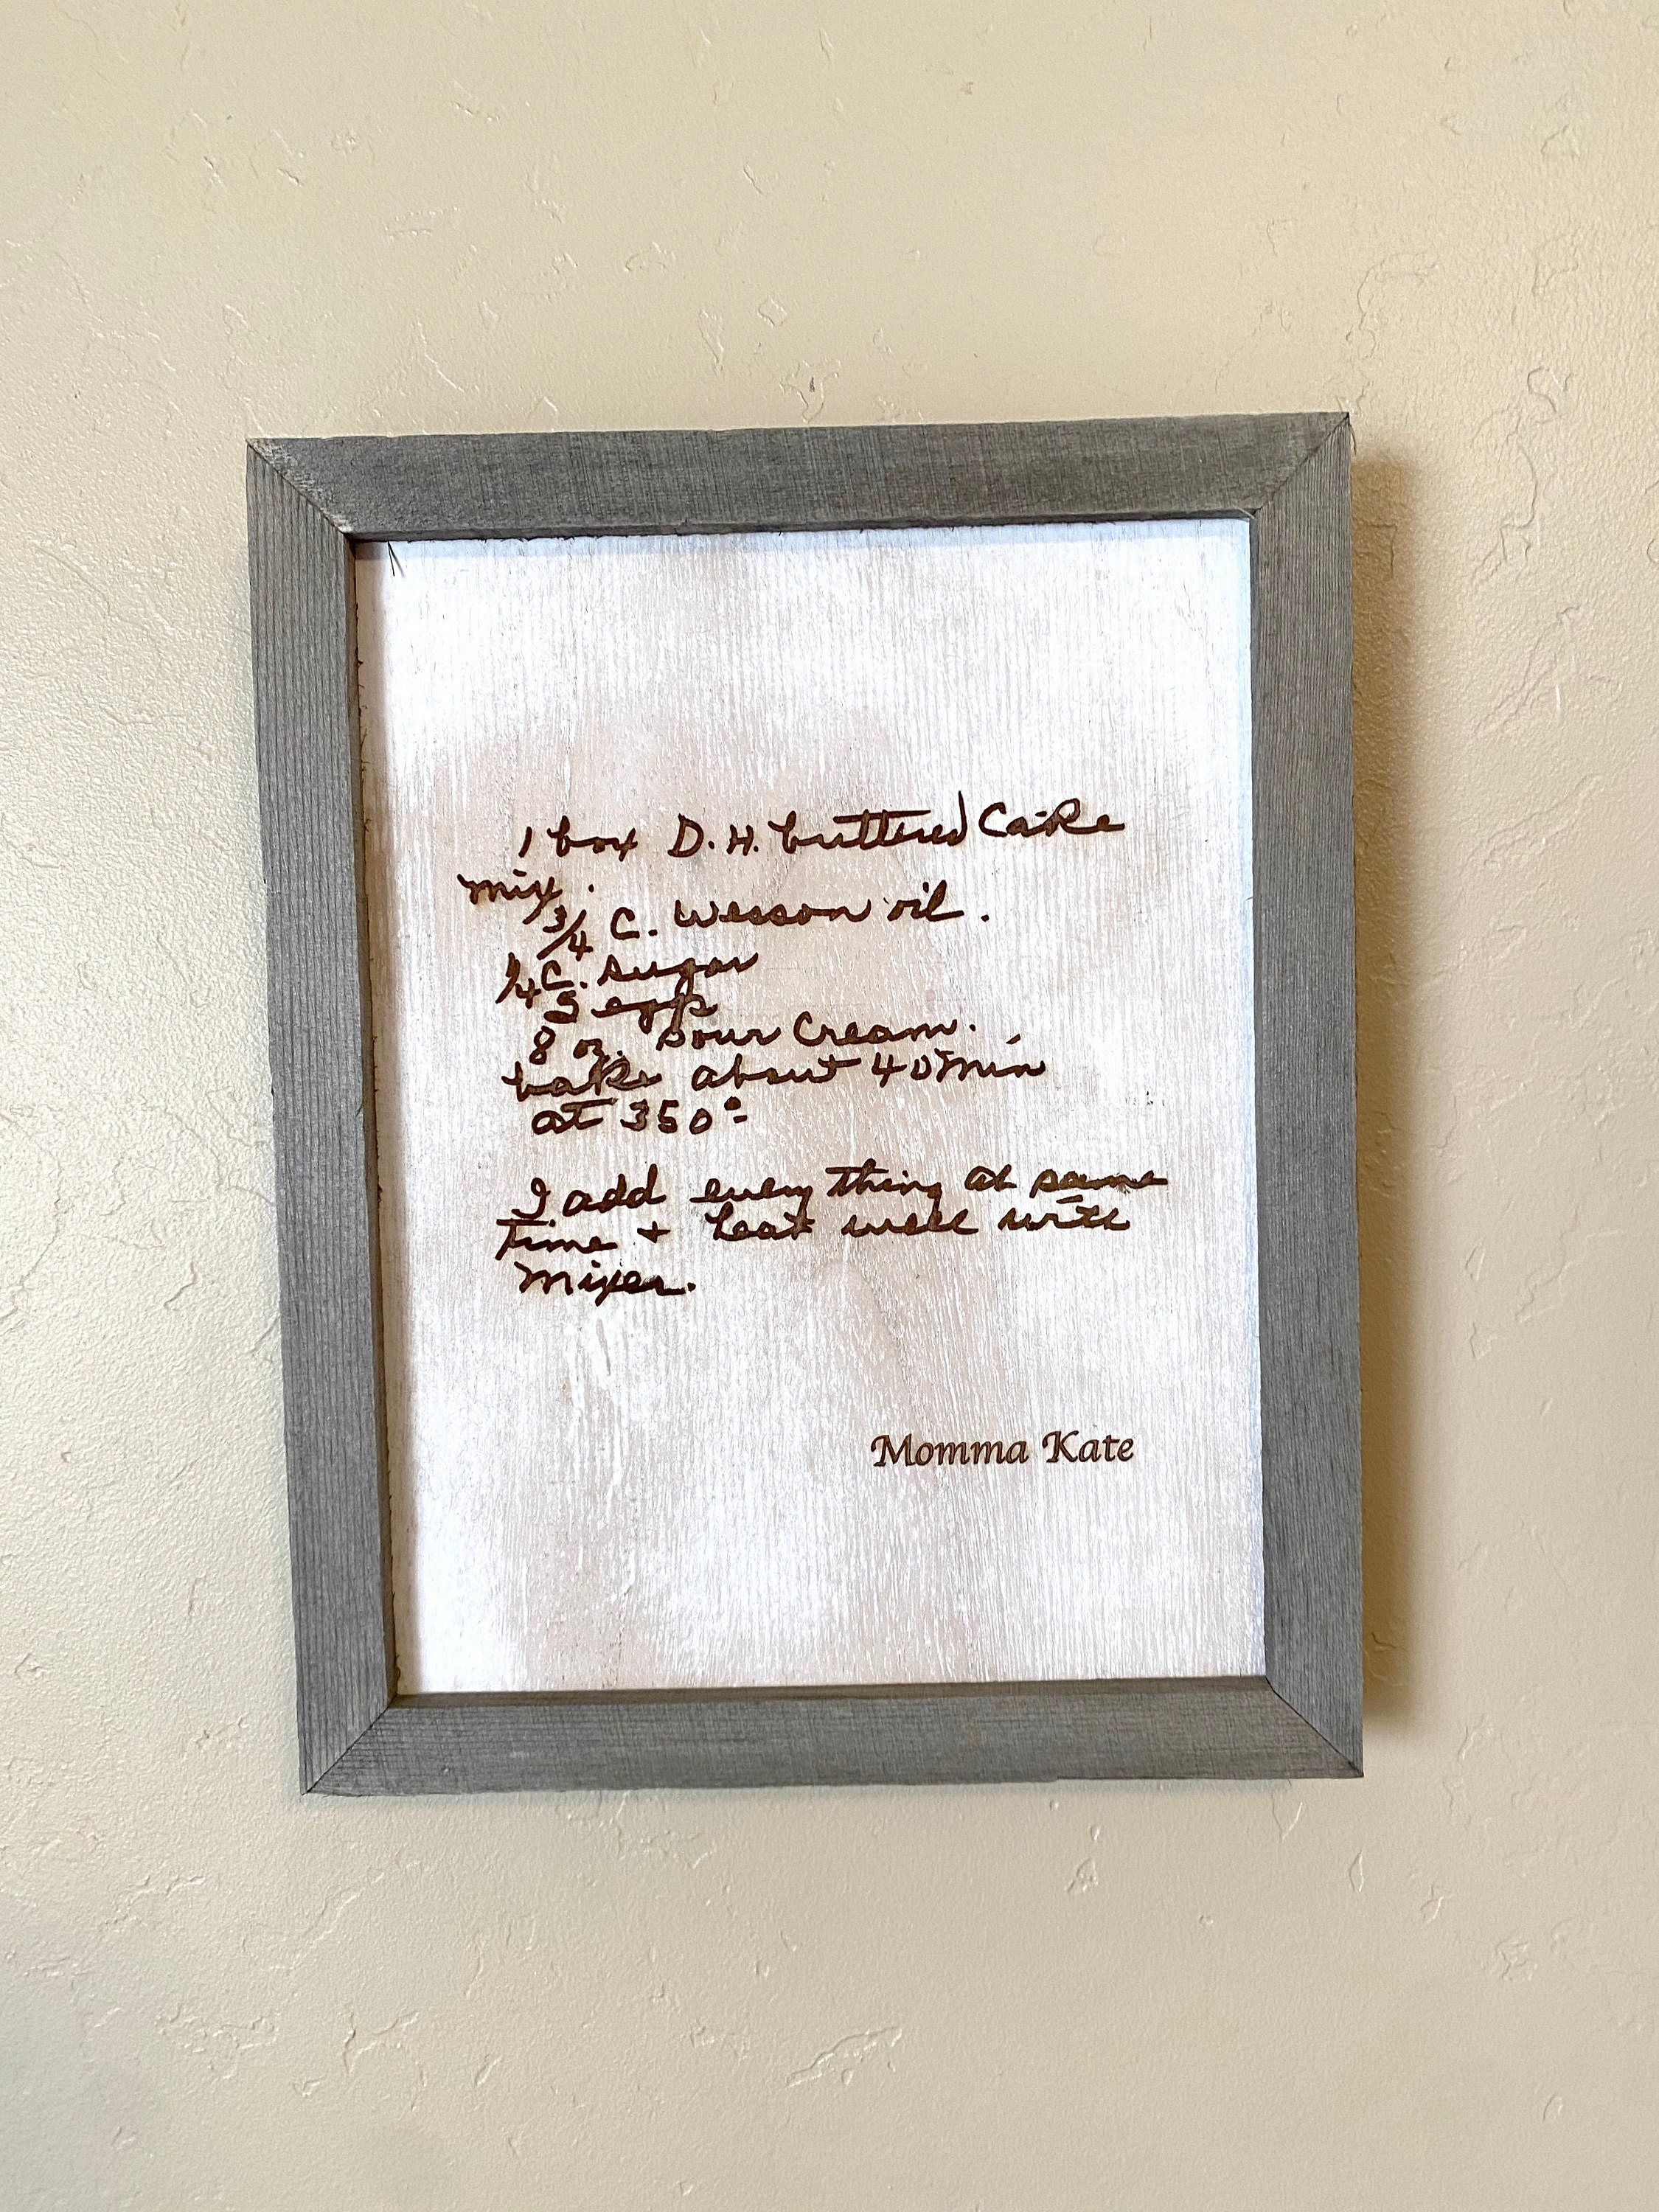 1 box D.H. buttered Cake
mix.
3/4 C. Wesson oil.
1/4 C. sugar
5 eggs
8 oz. sour Cream.
bake about 40 min
at 350°
I add everything at same
time + beat well with
mixer.
Momma Kate